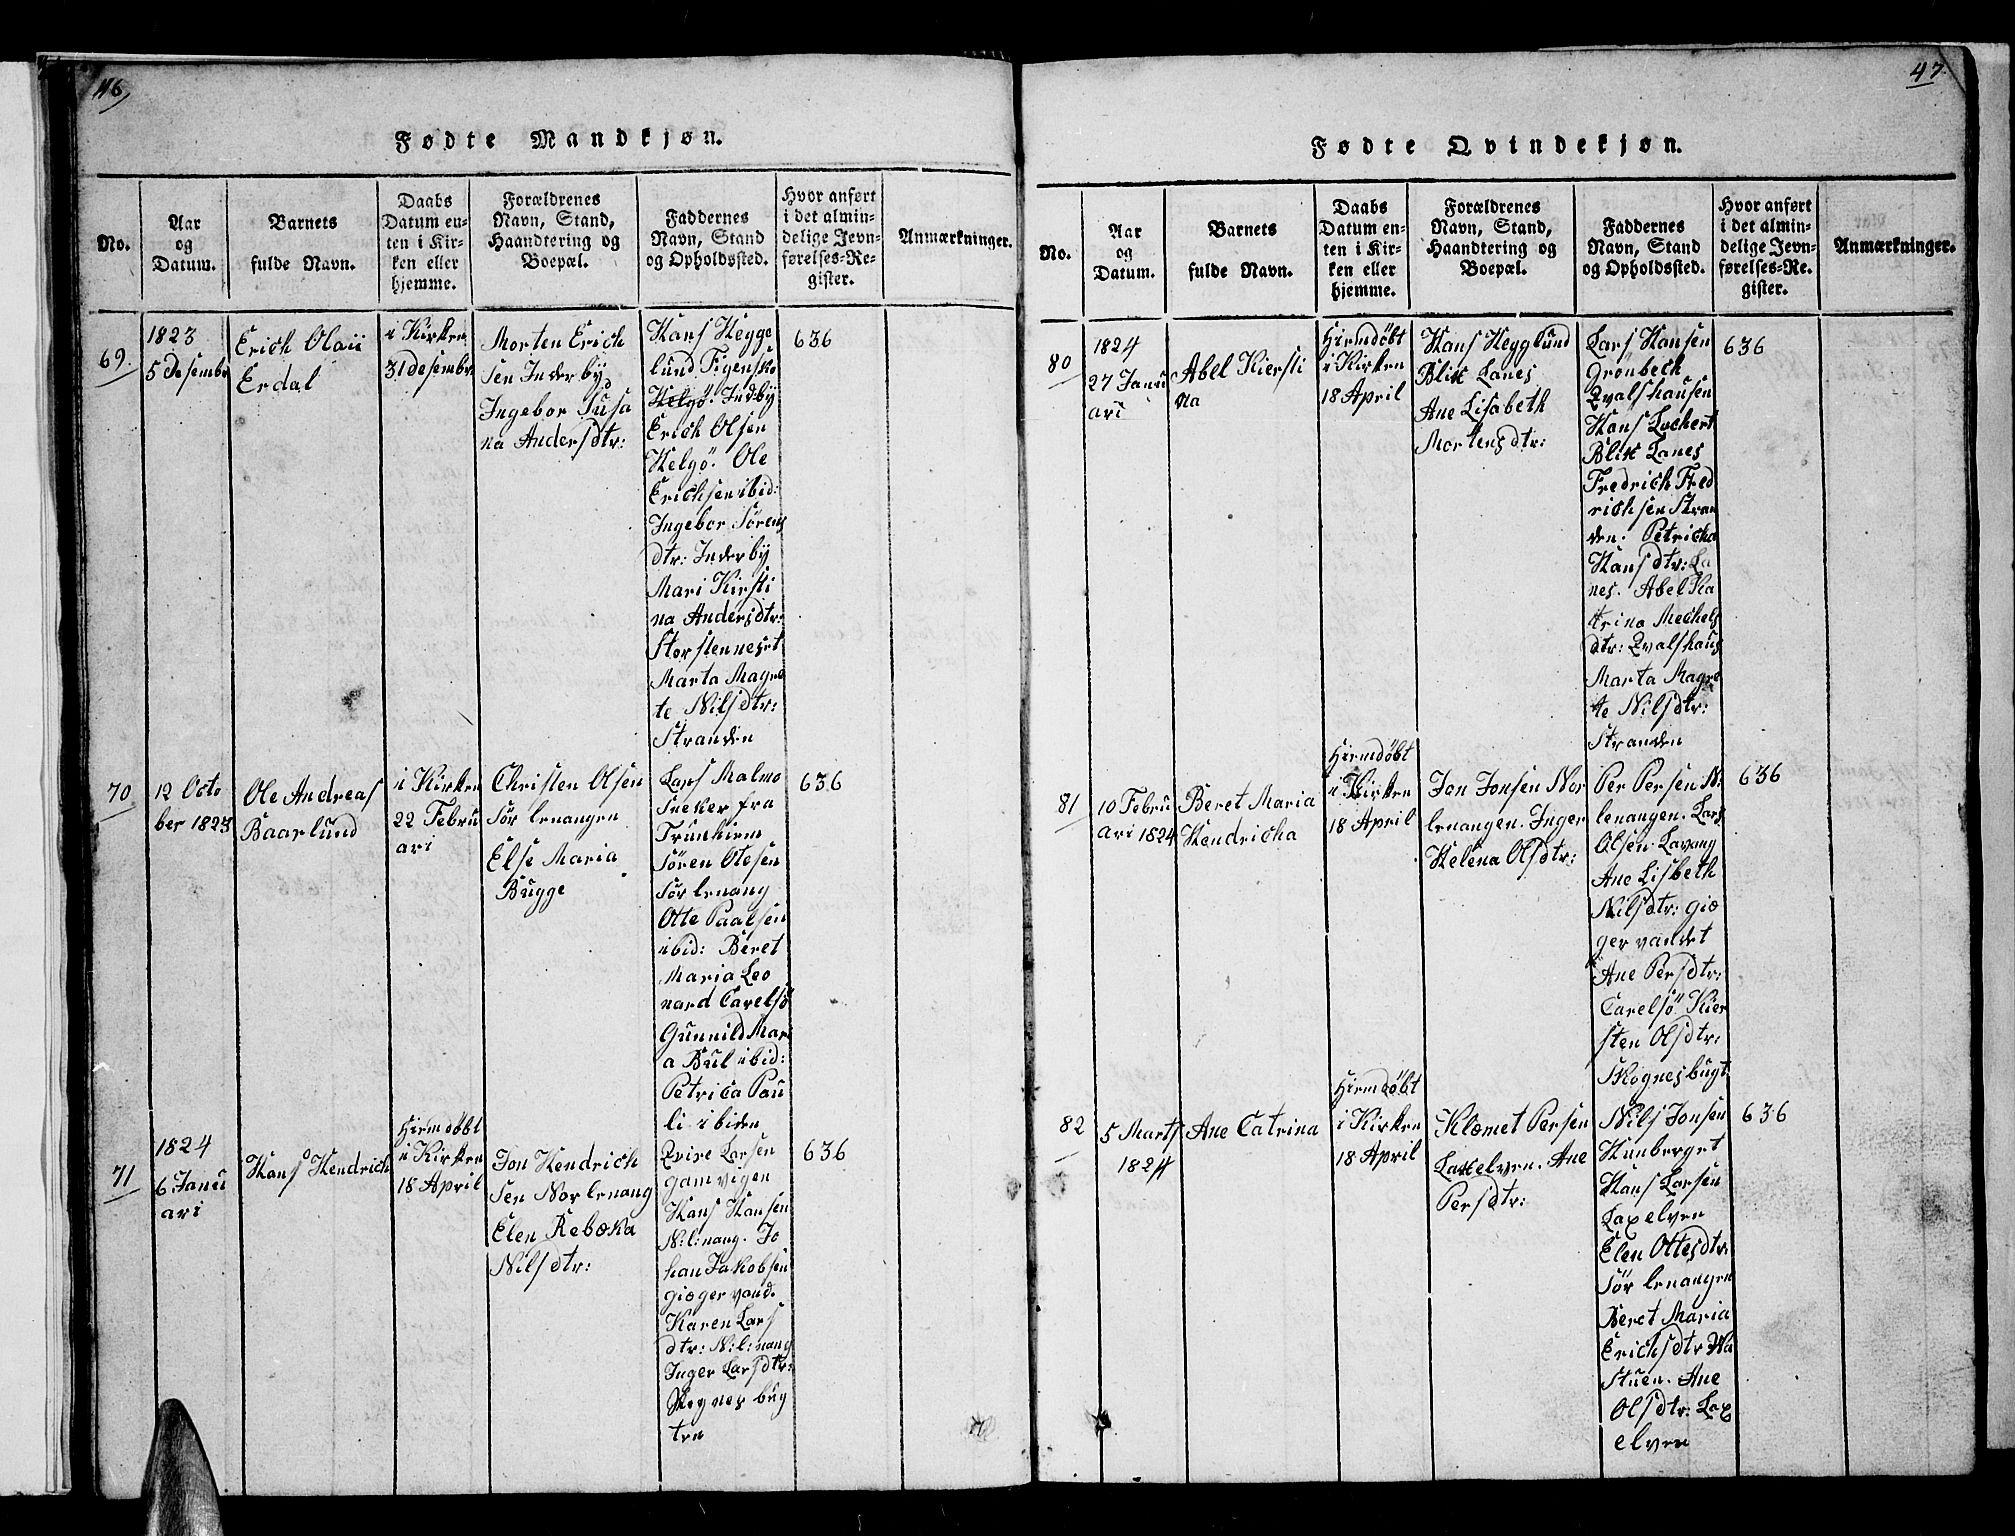 46,
Fødte Mandkjøn.
No.
Aar
og
Datum.
Barnets
fulde Navn.
Daabs
Datum en-
ten i Kir-
ken eller
hjemme.
Forældrenes
Navn, Stand,
Haandtering og
Boepæl.
Faddernes
Navn, Stand
og Opholdssted.
Hvor anført
i det almin-
delige Jevn-
førelses-Re-
gister.
Anmærkninger.
69.
1823
5 Desembr
Erich Olaii
Erdal
i Kirken
31 Desembr.
Morten Erich
sen Inderby
Ingebor Susa
na Andersdtr:
Hans Hegge
lund, Figensko
Helgö. Indby
Erich Olsen
Helgö. Ole
Erichsen ibid:
Ingebor Sörens
dtr: Inderby
Mari Kirsti
na Andersdtr:
Storstenneset
Marta Magre
te Nilsdtr:
Stranden
636
70
12 Octo
ber 1823
Ole Andreas
Baarlund
i Kirken
22 Febru
ari
Christen Olsen
Sör lenangen
Else Maria
Bugge
Lars Malmo
Sneker fra
Trunhiem
Sören Olesen
Sör lenang
Otte Paalsen
ibid: Beret
Maria Leo
nard Carelsö
Gunnild Mari
a Bul ibid:
Petrica Pau
li ibiden
636
71
1824
6 Janu
ari
Hans Hendrich
Hiemdöbt
i Kirken
18 April
Jon Hendrich
sen Nor lenang
Elen Rebæka
Nilsdtr:
Qvire Larsen
gamvigen
Hans Hansen
N:l:nang. Jo
han Jakobsen
giæger vand.
Karen Lars
dtr: N:l:nang
Inger Larsdtr:
Skognes bug
ten
636
47.
Fødte Qvindekjøn.
No.
Aar
og
Datum.
Barnets
fulde Navn.
Daabs
Datum en-
ten i Kir-
ken eller
hjemme.
Forældrenes
Navn, Stand,
Haandtering og
Boepæl.
Faddernes
Navn, Stand
og Opholdsted.
Hvor anført
i det almin-
delige Jevn-
førelses-Re-
gister.
Anmærkninger.
80
1824
27 Janu
ari
Abel Kiersti
na
Hiemdöbt
i Kirken
18 April
Hans Hegglund
Blix Lanes
Ane Lisabeth
Mortensdtr:
Lars Hansen
Grönbech
Qvalshausen
Hans Lochert
Blix Lanes
Fredrich Fred
richsen Stran
den. Petricha
Hansdtr: La
nes. Abel Ka
trina Mechels
dtr: Qvalshaus
Marta Magre
te Nilsdtr:
Stranden
636
81
10 Febru
ari 1824
Beret Maria
Hendricha
Hiemdöbt
i Kirken
18 April
Jon Jonsen Nor
lenangen. Inger
Helena Olsdtr:
Per Persen N:
lenangen. Lars
Olsen Lavang
Ane Lisbeth
Nilsdtr: giæ
ger vandet
Ane Persdtr:
Carelsö Kier
sten Olsdtr:
Skognesbugt.
636
82
5 Marts
1824
Ane Catrina
Hiemdöbt
i Kirken
18 April
Klæmet Persen
Laxelven. Ane
Persdtr:
Nils Jonsen
Hunberget
Hans Larsen
Laxelven
Elen Ottesdtr:
Sör lenangen
Beret Maria
Erichsdtr Na
stuen. Ane
Olsdtr: Lax
elven
636